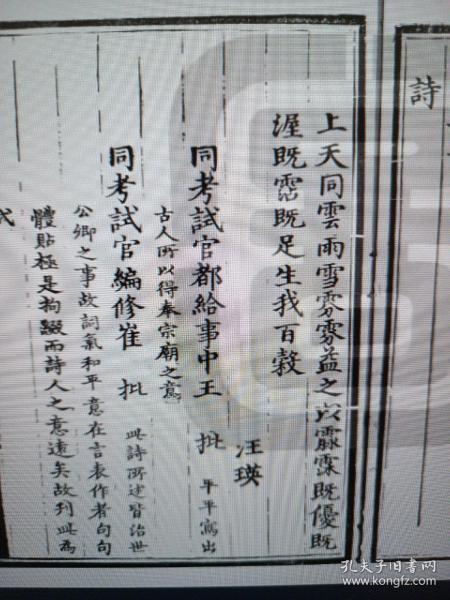 詩
上天同雲雨雪雰雰益之以霢霂既優既
渥既霑既足生我百穀
汪瑛
同考試官都給事中王 批 平平寫出
古人所以得奉宗廟之意
同考試官編修崔 批 此詩所述皆治世
公卿之事故詞氣和平意在言表作者句句
體貼極是拘綴而詩人之意遠矣故刊此為
式
孔夫子旧书网
www.kongfz.com